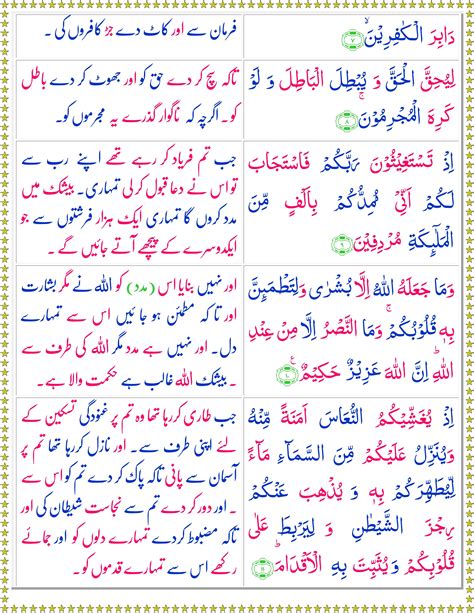 دَابِرَ الْكٰفِرِیْنَۙ ۷
فرمان سے اور کاٹ دے جڑ کافروں کی۔
لِیُحِقَّ الْحَقَّ وَ یُبْطِلَ الْبَاطِلَ وَ لَوْ
كَرِهَ الْمُجْرِمُوْنَۚ ۸
تاکہ سچ کر دے حق کو اور جھوٹ کر دے باطل
کو۔ اگرچہ کہ ناگوار گذرے یہ مجرموں کو۔
اِذْ تَسْتَغِیْثُوْنَ رَبَّكُمْ فَاسْتَجَابَ
لَكُمْ اَنِّیْ مُمِدُّكُمْ بِاَلْفٍ مِّنَ
الْمَلٰٓىِٕكَةِ مُرْدِفِیْنَ ۹
جب تم فریاد کر رہے تھے اپنے رب سے
تو اس نے دعا قبول کر لی تمہاری۔ بیشک میں
مدد کروں گا تمہاری ایک ہزار فرشتوں سے جو
ایکدوسرے کے پیچھے آتے جائیں گے۔
وَمَا جَعَلَهُ اللّٰهُ اِلَّا بُشْرٰى وَلِتَطْمَىِٕنَّ
بِهٖ قُلُوْبُكُمْۚ وَمَا النَّصْرُ اِلَّا مِنْ عِنْدِ
اللّٰهِؕ اِنَّ اللّٰهَ عَزِیْزٌ حَكِیْمٌ ۱۰ ع
اور نہیں بنایا اس (مدد) کو اللہ نے مگر بشارت
اور تا کہ مطمئن ہو جائیں اس سے تمہارے
دل۔ اور نہیں ہے مدد مگر اللہ کی طرف سے
۔ بیشک اللہ غالب ہے حکمت والا ہے۔
اِذْ یُغَشِّیْكُمُ النُّعَاسَ اَمَنَةً مِّنْهُ
وَیُنَزِّلُ عَلَیْكُمْ مِّنَ السَّمَآءِ مَآءً
لِّیُطَهِّرَكُمْ بِهٖ وَ یُذْهِبَ عَنْكُمْ
رِجْزَ الشَّیْطٰنِ وَ لِیَرْبِطَ عَلٰى
قُلُوْبِكُمْ وَ یُثَبِّتَ بِهِ الْاَقْدَامَؕ ۱۱
جب طاری کر رہا تھا وہ تم پر غنودگی تسکین کے
لئے اپنی طرف سے۔ اور نازل کر رہا تھا تم پر
آسمان سے پانی تاکہ پاک کر دے تم کو اس سے
۔ اور دور کر دے تم سے نجاست شیطان کی اور
تاکہ مضبوط کردے تمہارے دلوں کو اور جمائے
رکھے اس سے تمہارے قدموں کو۔